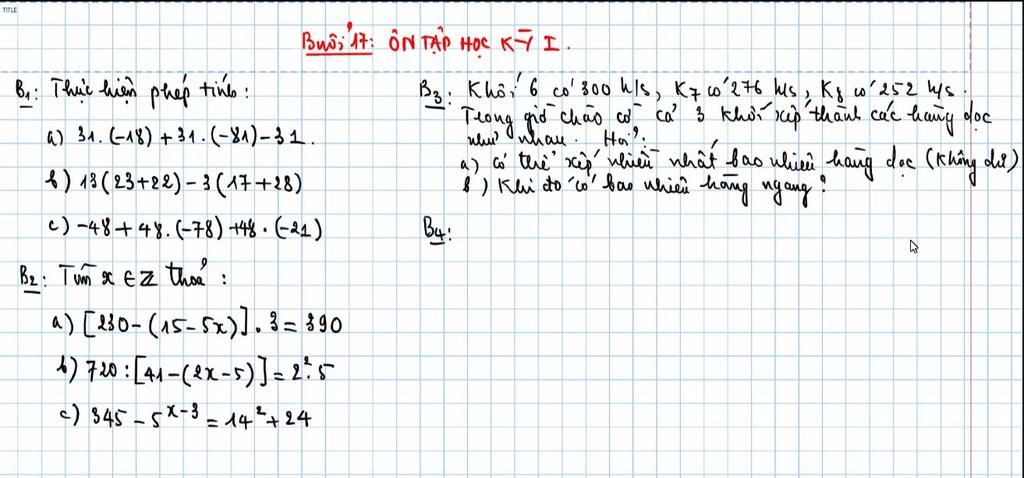 TITLE
Buổi 17: ÔN TẬP HỌC KỲ I.
B1: Thực hiện phép tính:
a) 31.(-18) + 31.(-81) - 31.
b) 13(23+22) - 3(17+28)
c) -48 + 48.(-78) + 48.(-21)
B2: Tìm x ∈ Z thoả:
a) [230 - (15 - 5x)] . 3 = 390
b) 720 : [41 - (2x - 5)] = 2³.5
c) 345 - 5^(x-3) = 14² + 24
B3: Khối 6 có 300 h/s, K7 có 276 h/s, K8 có 252 h/s.
Trong giờ chào cờ cả 3 khối xếp thành các hàng dọc
như nhau. Hỏi?
a) có thể xếp nhiều nhất bao nhiêu hàng dọc (không dư)
b) Khi đó có bao nhiêu hàng ngang?
B4: